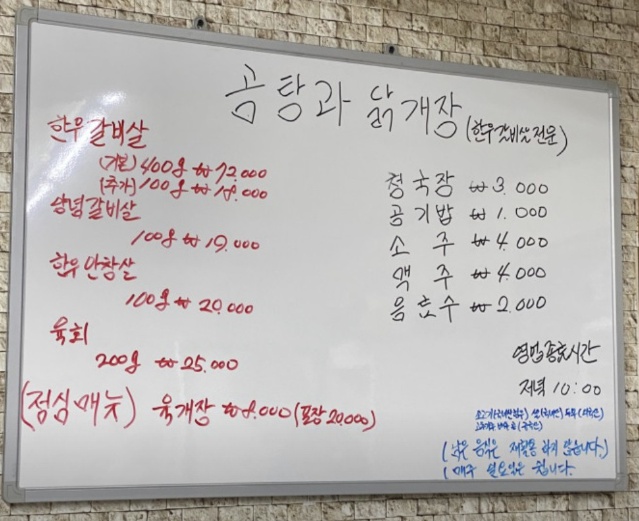 곰탕과 닭개장 (한우갈비살전문)
한우갈비살
(기본) 400g ₩72.000
(추가) 100g ₩18.000
양념갈비살
100g ₩19.000
한우안창살
100g ₩20.000
육회
200g ₩25.000
(점심매뉴) 육개장 ₩8.000 (포장 20.000)
청국장 ₩3.000
공기밥 ₩1.000
소주 ₩4.000
맥주 ₩4.000
음료수 ₩2.000
영업종료시간
저녁 10:00
(남은 음식은 재활용 하지 않습니다.)
(매주 일요일은 쉽니다.